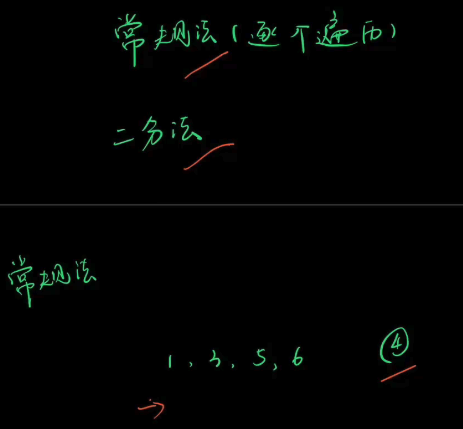 常规法(逐个遍历)
二分法
常规法
1、3、5、6 ④